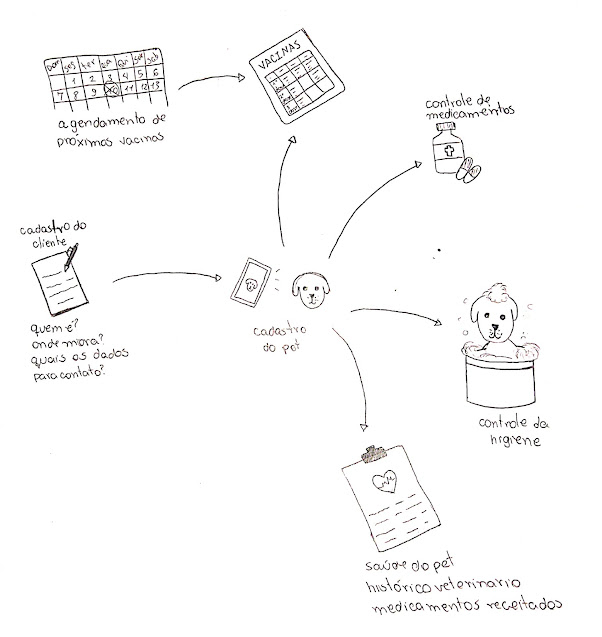 Dom Seg ter qua Qui Sex Sab
1 2 3 4 5 6
7 8 9 11 12 13
agendamento de
próximas vacinas
VACINAS
controle de
medicamentos
cadastro do
cliente
quem é?
onde mora?
quais os dados
para contato?
cadastro
do pet
controle da
higiene
saúde do pet
histórico veterinario
medicamentos receitados